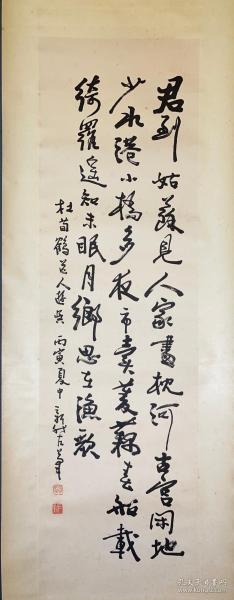 君到姑蘇見人家盡枕河古宮閑地
少水港小橋多夜市賣菱藕春船載
綺羅遥知未眠月鄉思在漁歌
杜荀鶴送人遊吳 丙寅夏中